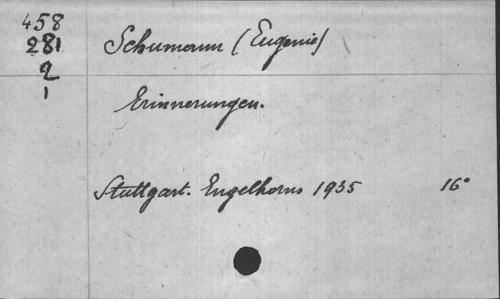 458
281
2
1
Schumann (Eugenie)
Erinnerungen.
Stuttgart. Engelhorns 1935 16°